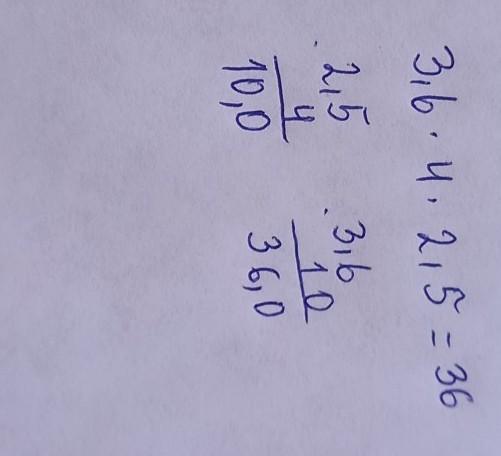 3,6 · 4 · 2,5 = 36
· 2,5
4
10,0
· 3,6
10
36,0